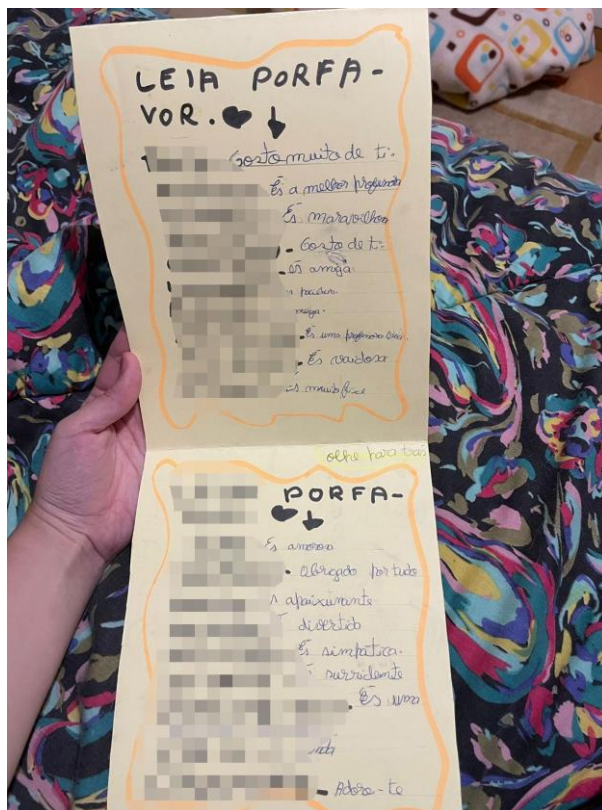 LEIA PORFA-
VOR.
Gosto muito de ti.
És a melhor
És maravilhosa
Gosto de ti.
És amiga.
meiga.
És uma professora
És vaidosa
És muito
olhe para trás
PORFA-
És amorosa
Obrigado por tudo
apaixunante
divertida
És simpática.
surridente
És uma
Adoro-te